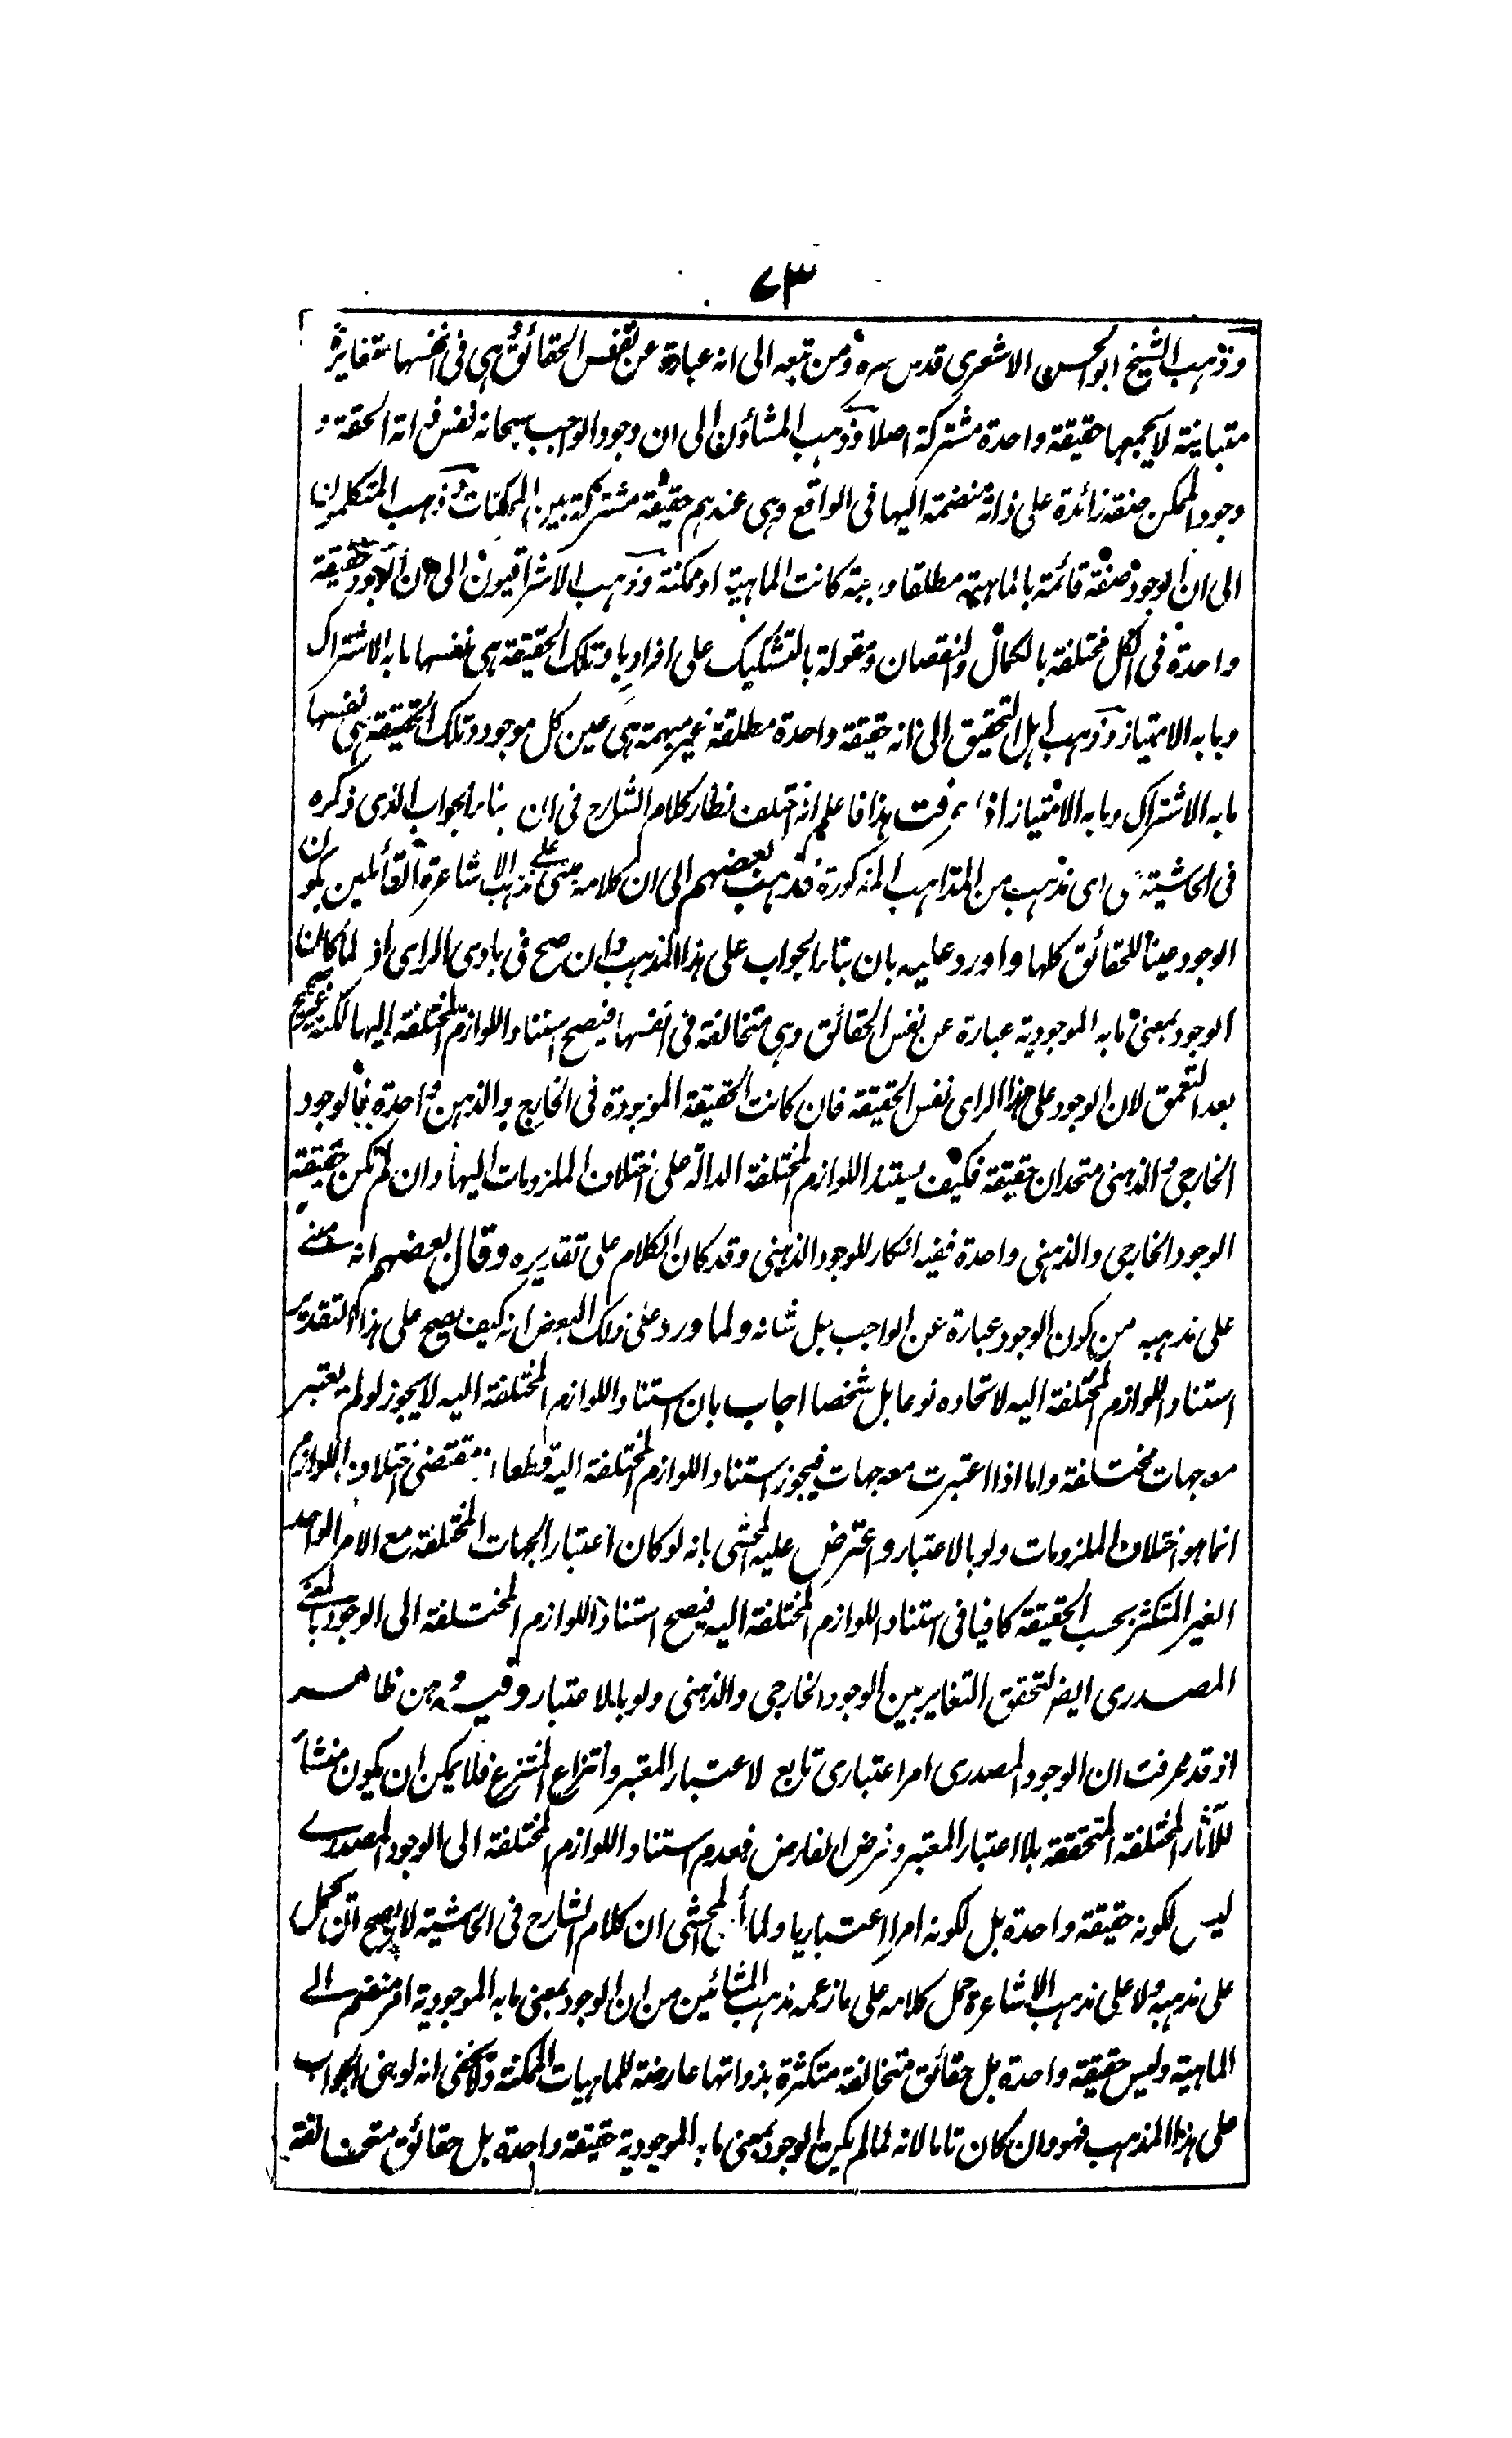 ٧٣
وذهب الشيخ ابو الحسن الاشعري قدس سره ومن تبعه الى انه عبارة عن نفس الحقائق وهي في انفسها متغايرة
متباينة لا يجمعها حقيقة واحدة مشتركة اصلا وذهب المشاؤن الى ان وجود الواجب سبحانه نفس ذاته الحقة و
وجود الممكن صفة زائدة على ذاته منضمة اليها في الواقع وهي عندهم حقيقة مشتركة بين الممكنات وذهب المتكلمون
الى ان الوجود صفة قائمة بالماهية مطلقا واجبة كانت الماهية او ممكنة وذهب الاشراقيون الى ان الوجود حقيقة
واحدة في الكل مختلفة بالكمال والنقصان ومقولة بالتشكيك على افرادها وتلك الحقيقة هي نفسها ما به الاشتراك
وما به الامتياز وذهب اهل التحقيق الى انه حقيقة واحدة مطلقة غير مبهمة هي عين كل موجود وتلك الحقيقة هي نفسها
ما به الاشتراك وما به الامتياز اذا عرفت هذا فاعلم انه اختلف نظار كلام الشارح في ان بناء الجواب الذي ذكره
في الحاشية على اي مذهب من المذاهب المذكورة فذهب بعضهم الى ان كلامه مبني على مذهب الاشاعرة القائلين بكون
الوجود عينا للحقائق كلها واورد عليه بان بناء الجواب على هذا المذهب وان صح في بادي الراي اذ لما كان
الوجود بمعنى ما به الموجودية عبارة عن نفس الحقائق وهي متخالفة في انفسها فيصح استناد اللوازم المختلفة اليها لكنه غير صحيح
بعد التعمق لان الوجود على هذا الراي نفس الحقيقة فان كانت الحقيقة الموجودة في الخارج والذهن واحدة فالوجود
الخارجي والذهني متحدان حقيقة فكيف يستند اللوازم المختلفة الدالة على اختلاف الملزومات اليها وان لم تكن حقيقة
الوجود الخارجي والذهني واحدة ففيه انكار للوجود الذهني وقد كان الكلام على تقديره وقال بعضهم انه مبني
على مذهبه من كون الوجود عبارة عن الواجب جل شانه ولما ورد على ذلك البعض انه كيف يصح على هذا التقدير
استناد اللوازم المختلفة اليه لاتحاده نوعا بل شخصا اجاب بان استناد اللوازم المختلفة اليه لا يجوز لو لم يعتبر
معه جهات مختلفة واما اذا اعتبرت معه جهات فيجوز استناد اللوازم المختلفة اليه قطعا اذ مقتضى اختلاف اللوازم
انما هو اختلاف الملزومات ولو بالاعتبار واعترض عليه المحشي بانه لو كان اعتبار الجهات المختلفة مع الامر الواحد
الغير المتكثر بحسب الحقيقة كافيا في استناد اللوازم المختلفة اليه فيصح استناد اللوازم المختلفة الى الوجود بالمعنى
المصدري ايضا لتحقق التغاير بين الوجود الخارجي والذهني ولو بالاعتبار وفيه وهن ظاهر
اذ قد عرفت ان الوجود المصدري امر اعتباري تابع لاعتبار المعتبر وانتزاع المنتزع فلا يمكن ان يكون منشأ
للآثار المختلفة المتحققة بلا اعتبار المعتبر وفرض الفارض فعدم استناد اللوازم المختلفة الى الوجود المصدري
ليس لكونه حقيقة واحدة بل لكونه امرا اعتباريا ولما المحشي ان كلام الشارح في الحاشية لا يصح ان يحمل
على مذهبه ولا على مذهب الاشاعرة حمل كلامه على ما زعمه مذهب المشائين من ان الوجود بمعنى ما به الموجودية امر منضم الى
الماهية وليس حقيقة واحدة بل حقائق متخالفة متكثرة بذواتها عارضة للماهيات الممكنة ولا يخفى انه لو بنى الجواب
على هذا المذهب فهو وان كان تاما لانه لما لم يكن الوجود بمعنى ما به الموجودية حقيقة واحدة بل حقائق متخالفة